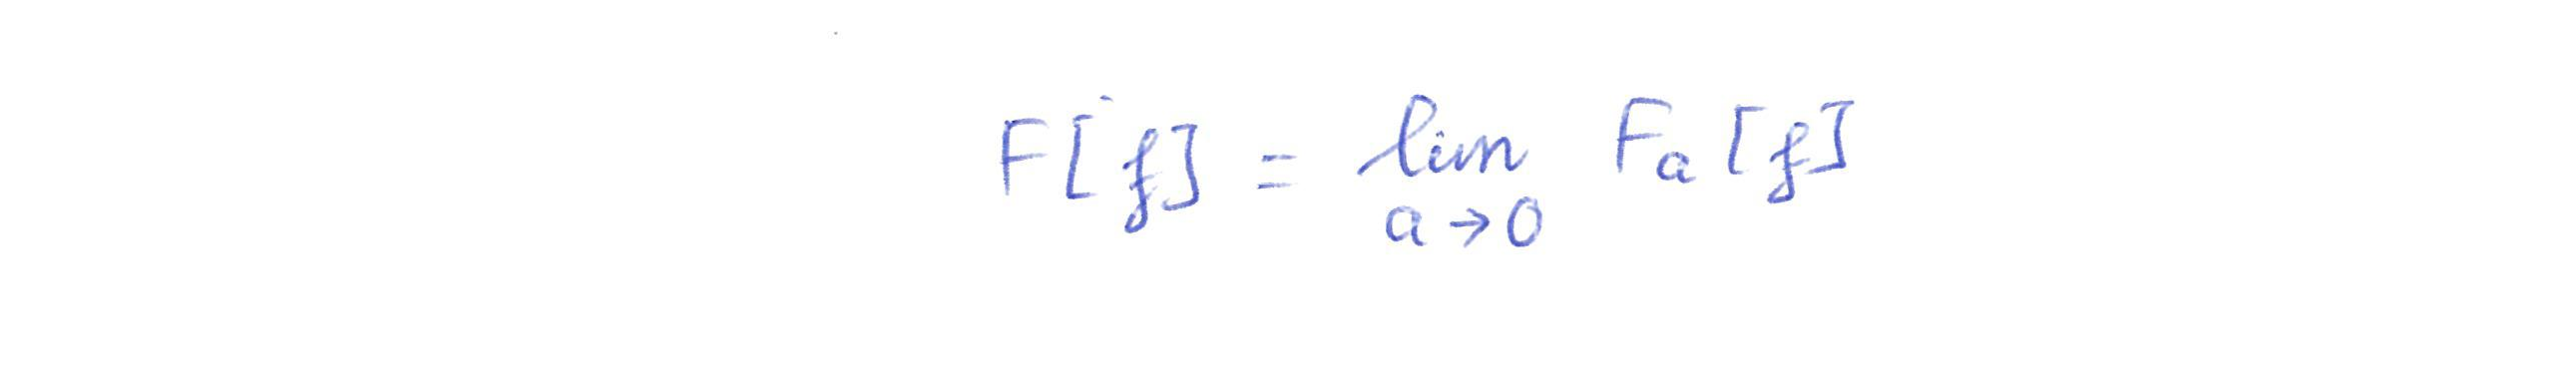 F[f] = lim_{a→0} F_a[f]